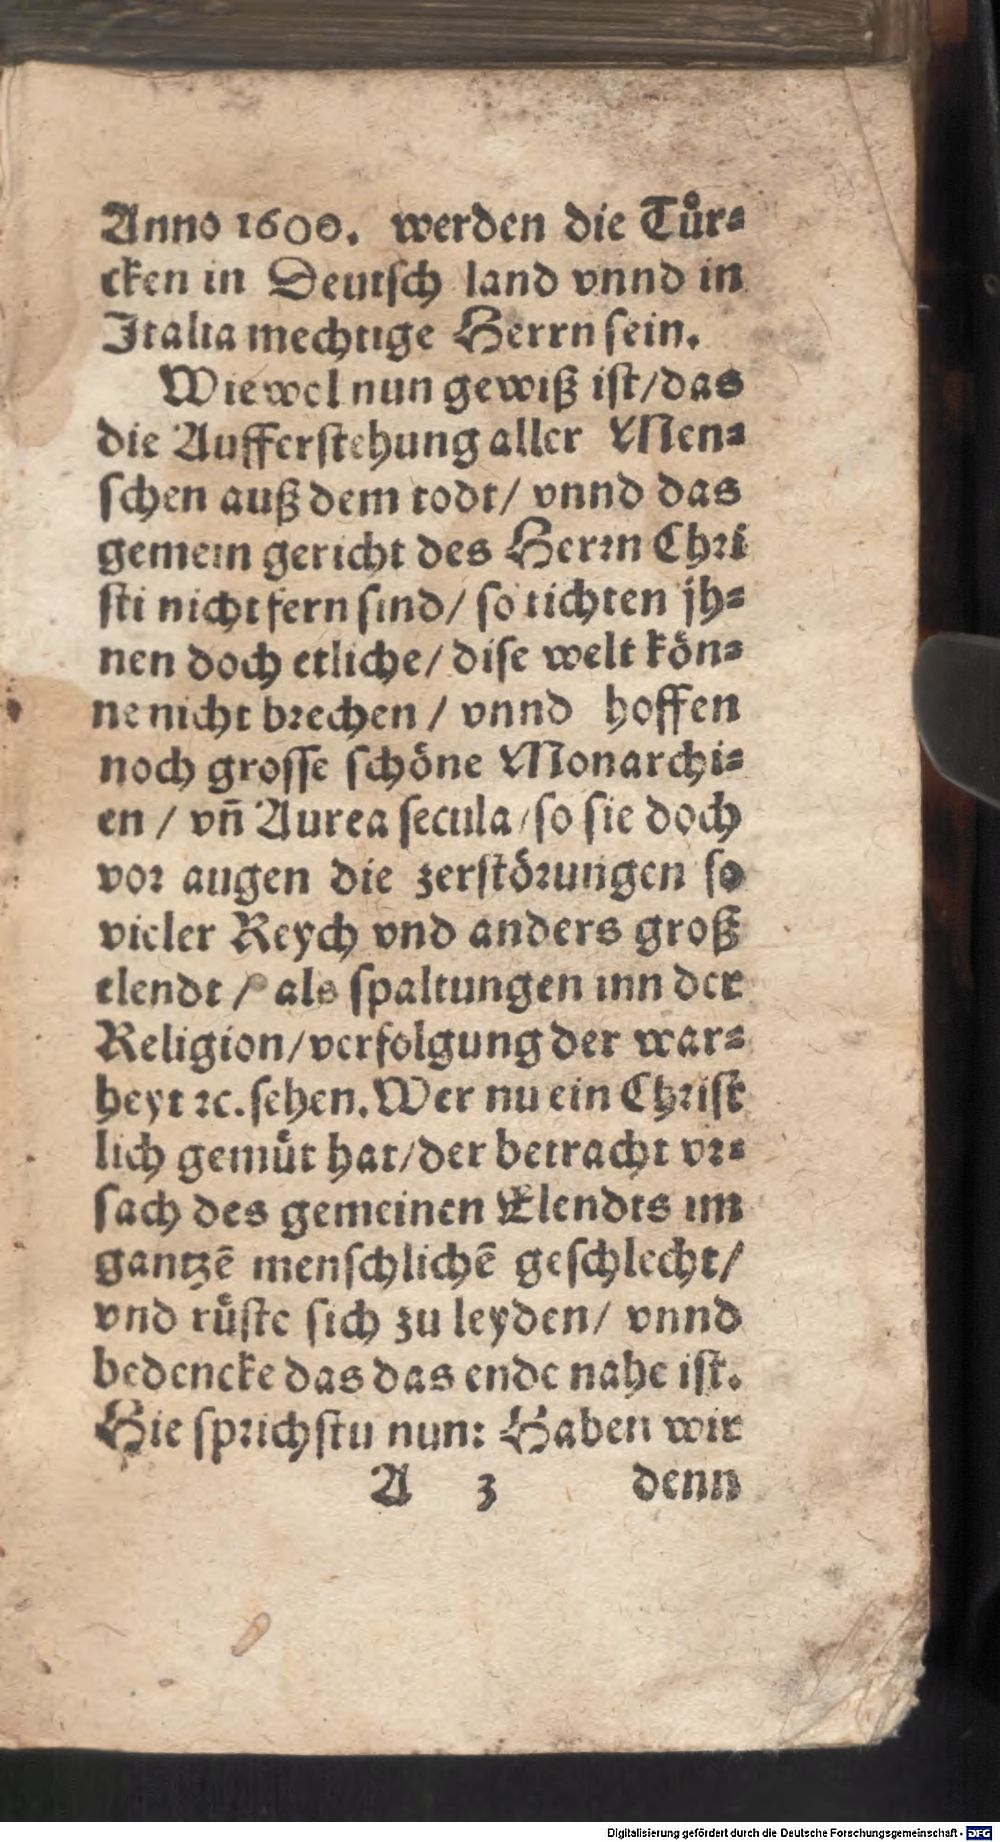 Anno 1600. werden die Tuͤr⸗
cken in Deutſch land vnnd in
Italia mechtige Herrn ſein.
Wiewol nun gewiß iſt/das
die Aufferſtehung aller Men⸗
ſchen auß dem todt/ vnnd das
gemein gericht des Herꝛn Chꝛi
ſti nicht fern ſind/ ſo tichten jh⸗
nen doch etliche/ diſe welt koͤn⸗
ne nicht bꝛechen / vnnd hoffen
noch groſſe ſchoͤne Monarchi⸗
en / vn̄ Aurea ſecula/ſo ſie doch
voꝛ augen die zerſtoͤꝛungen ſo
vieler Reych vnd anders groß
elendt / als ſpaltungen inn der
Religion/verfolgung der war⸗
heyt ꝛc.ſehen. Wer nu ein Chꝛiſt
lich gemuͤt hat/der betracht vꝛ⸗
ſach des gemeinen Elendts im
gantzē menſchlichē geſchlecht/
vnd ruͤſte ſich zu leyden/ vnnd
bedencke das das ende nahe iſt.
Hie ſpꝛichſtu nun: Haben wir
A 3 denn
Digitalisierung gefördert durch die Deutsche Forschungsgemeinschaft - DFG